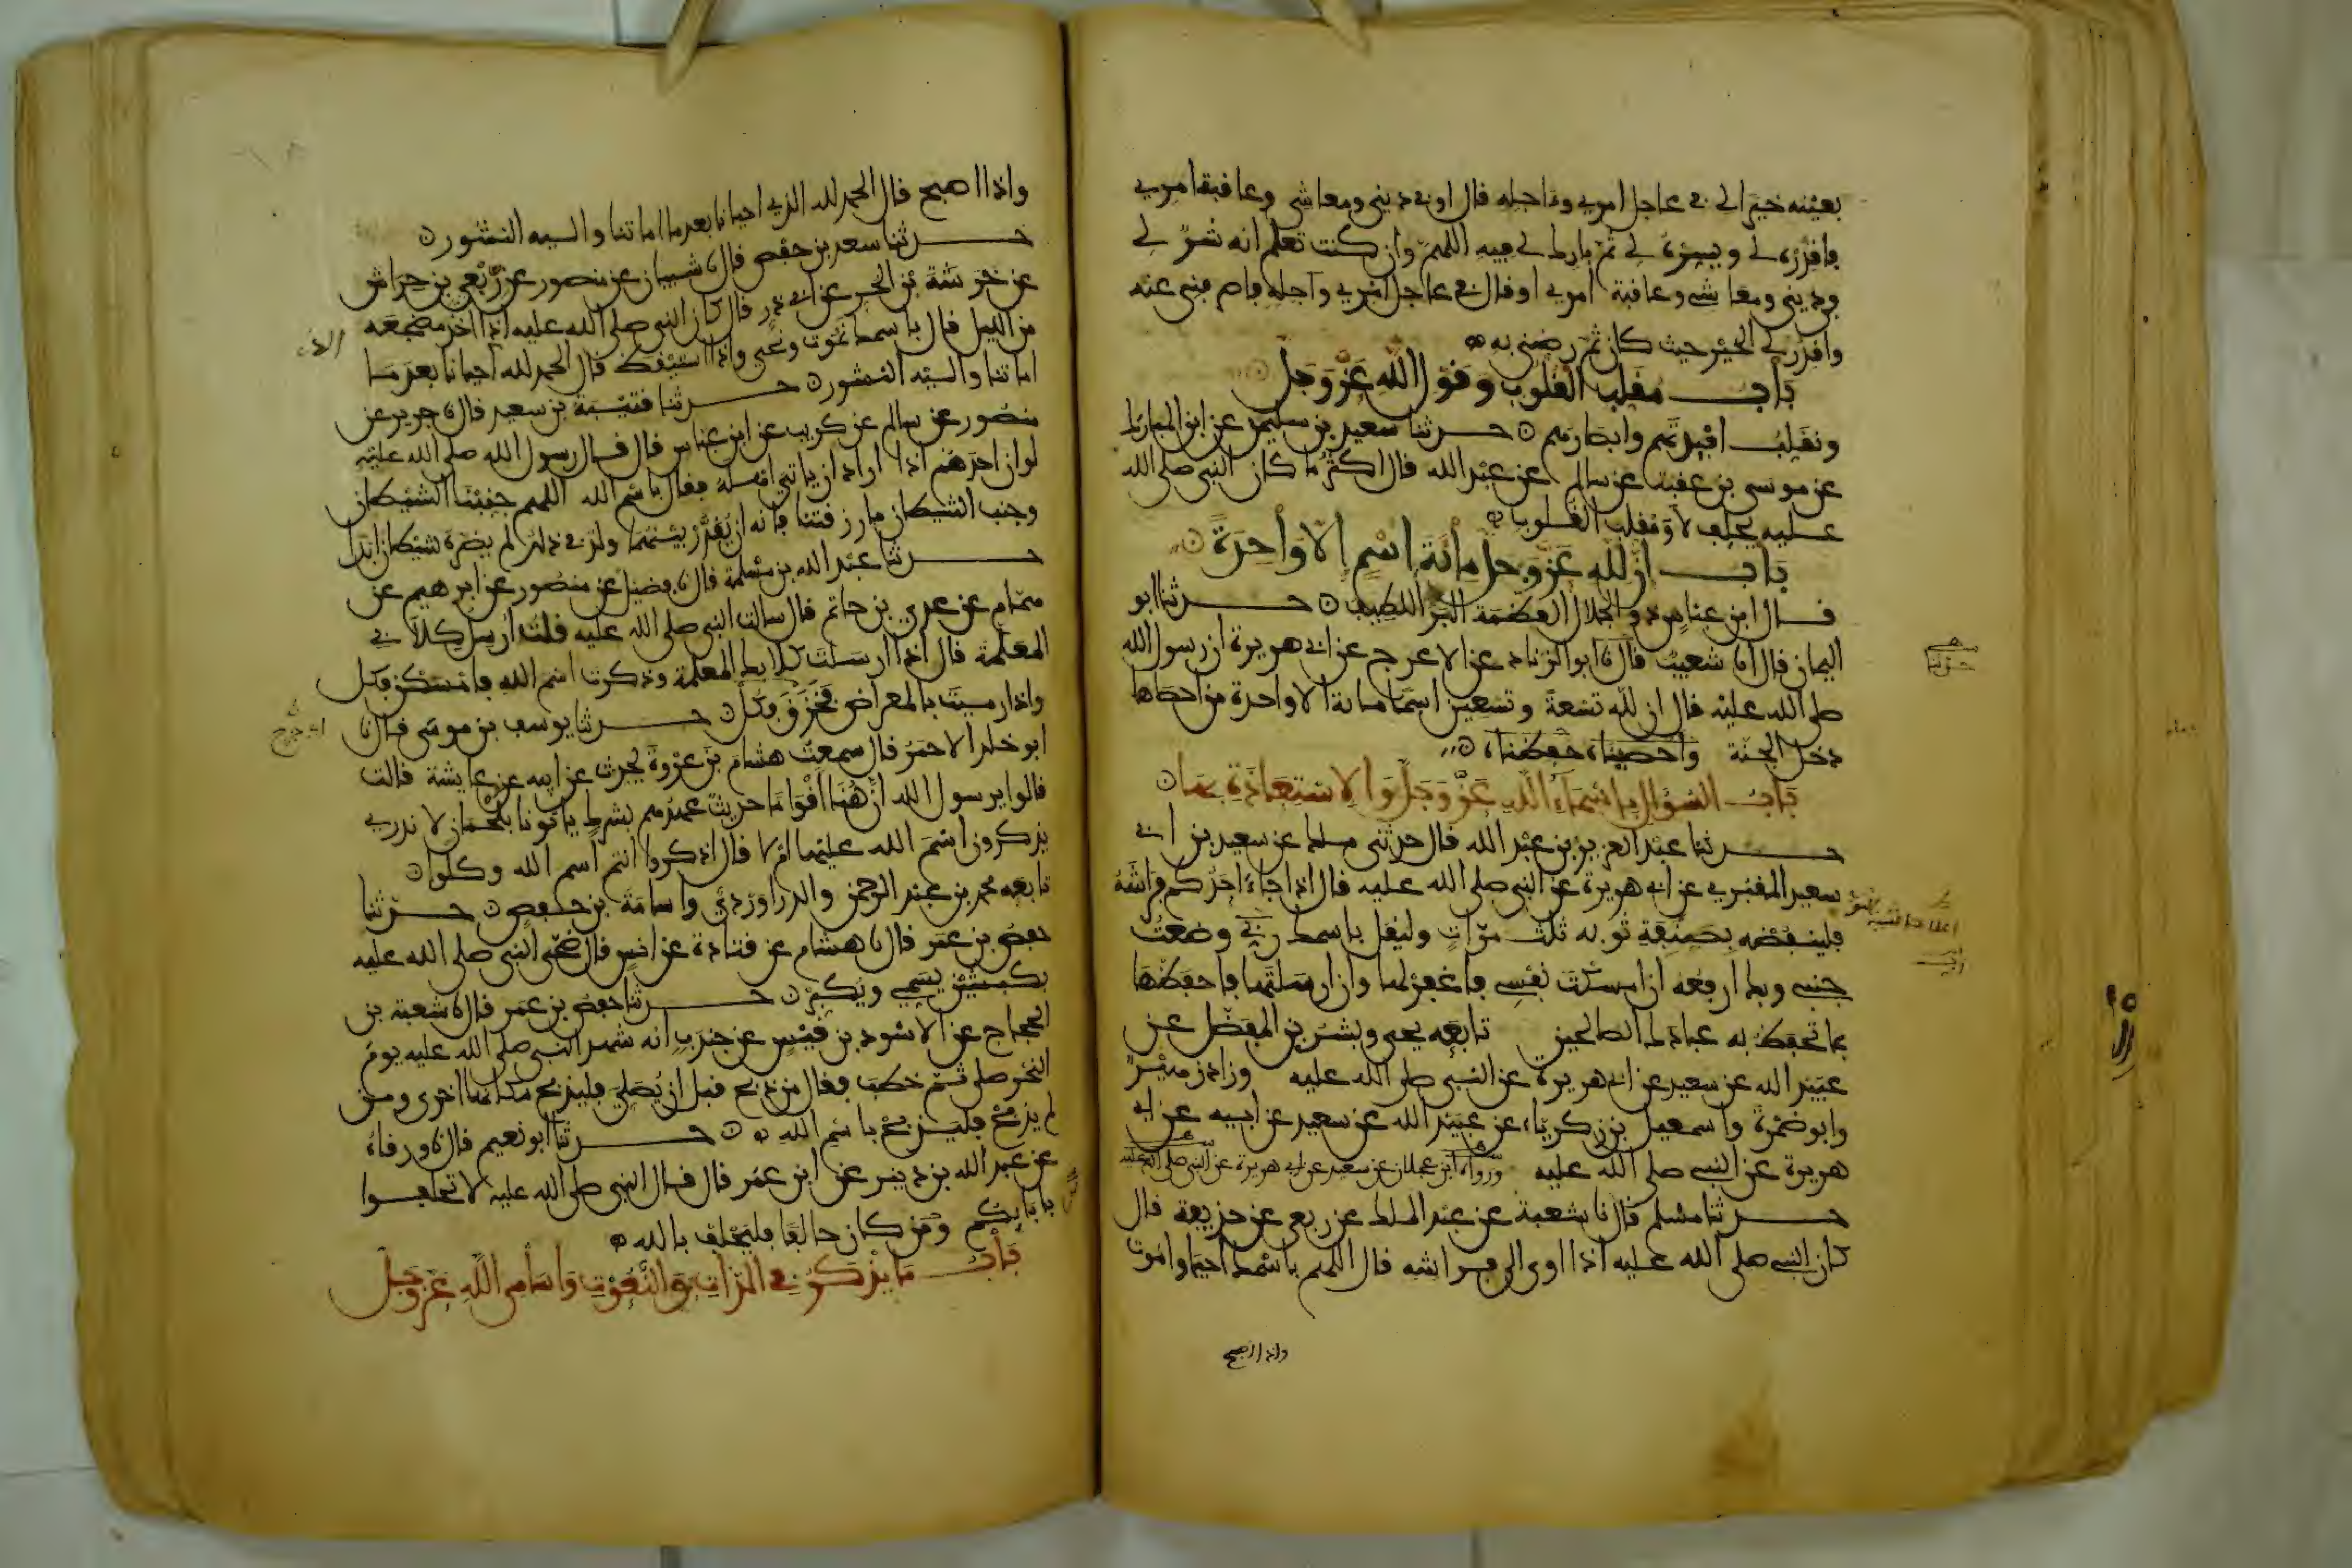 بعينه خيرا لي في عاجل امري وءاجله قال او في ديني ومعاشي وعاقبة امري
فاقدره لي ويسره لي ثم بارك لي فيه اللهم وان كنت تعلم انه شر لي
في ديني ومعاشي وعاقبة امري او قال في عاجل امري وآجله فاصرفني عنه
واقدر لي الخير حيث كان ثم رضني به
باب مقلب القلوب وقول الله عز وجل
ونقلب افئدتهم وابصارهم حدثنا سعيد بن سليمن عن ابن المبارك
عن موسى بن عقبة عن سالم عن عبد الله قال اكثر ما كان النبي صلى الله
عليه يحلف لا ومقلب القلوب
باب ان لله عز وجل مائة اسم الا واحدة
قال ابن عباس ذو الجلال العظمة البر اللطيف حدثنا ابو
اليمان قال انا شعيب قال نا ابو الزناد عن الاعرج عن ابي هريرة ان رسول الله
صلى الله عليه قال ان لله تسعة وتسعين اسما مائة الا واحدة من احصاها
دخل الجنة واحصيناه حفظناه
باب السؤال باسماء الله عز وجل والاستعاذة بها
حدثنا عبد العزيز بن عبد الله قال حدثني ملك عن سعيد بن ابي
سعيد المقبري عن ابي هريرة عن النبي صلى الله عليه قال اذا جاء احدكم فراشه
فلينفضه بصنفة ثوبه ثلث مرات وليقل باسمك ربي وضعت
جنبي وبك ارفعه ان امسكت نفسي فاغفر لها وان ارسلتها فاحفظها
بما تحفظ به عبادك الصالحين تابعه يحيى وبشر بن المفضل عن
عبيد الله عن سعيد عن ابي هريرة عن النبي صلى الله عليه وزاد زهير
وابو ضمرة واسمعيل بن زكرياء عن عبيد الله عن سعيد عن ابيه عن ابي
هريرة عن النبي صلى الله عليه ورواه ابن عجلان عن سعيد عن ابي هريرة عن النبي صلى الله عليه
حدثنا مسلم قال نا شعبة عن عبد الملك عن ربعي عن حذيفة قال
كان النبي صلى الله عليه اذا اوى الى فراشه قال اللهم باسمك احيا واموت
واذا اصبح
واذا اصبح قال الحمد لله الذي احيانا بعد ما اماتنا واليه النشور
حدثنا سعد بن حفص قال نا شيبان عن منصور عن ربعي بن حراش
عن خرشة بن الحر عن ابي ذر قال كان النبي صلى الله عليه اذا اخذ مضجعه
من الليل قال باسمك نموت ونحيى واذا استيقظ قال الحمد لله احيانا بعد ما
الذي
اماتنا واليه النشور حدثنا قتيبة بن سعيد قال نا جرير عن
منصور عن سالم عن كريب عن ابن عباس قال قال رسول الله صلى الله عليه
لو ان احدهم اذا اراد ان ياتي اهله فقال باسم الله اللهم جنبنا الشيطان
وجنب الشيطان ما رزقتنا فانه ان يقدر بينهما ولد في ذلك لم يضره شيطان ابدا
حدثنا عبد الله بن مسلمة قال نا فضيل عن منصور عن ابرهيم عن
همام عن عدي بن حاتم قال سالت النبي صلى الله عليه قلت ارسل كلابي
المعلمة قال اذا ارسلت كلابك المعلمة وذكرت اسم الله فامسكن فكل
واذا رميت بالمعراض فخزق فكل حدثنا يوسف بن موسى قال نا
ابو خلد الاحمر قال سمعت هشام بن عروة يحدث عن ابيه عن عايشة قالت
قالوا يرسول الله ان هنا اقواما حديث عهدهم بشرك ياتونا بلحمان لا ندري
يذكرون اسم الله عليها ام لا قال اذكروا انتم اسم الله وكلوا
تابعه محمد بن عبد الرحمن والدراوردي واسامة بن حفص حدثنا
حفص بن عمر قال نا هشام عن قتادة عن انس قال ضحى النبي صلى الله عليه
بكبشين يسمي ويكبر حدثنا حفص بن عمر قال نا شعبة بن
الحجاج عن الاسود بن قيس عن جندب انه شهد النبي صلى الله عليه يوم
النحر صلى ثم خطب فقال من ذبح قبل ان يصلي فليذبح مكانها اخرى ومن
لم يذبح فليذبح باسم الله حدثنا ابو نعيم قال نا ورقاء
عن عبد الله بن دينر عن ابن عمر قال قال النبي صلى الله عليه لا تحلفوا
بابايكم ومن كان حالفا فليحلف بالله
باب ما يذكر في الذات والنعوت واسامي الله عز وجل